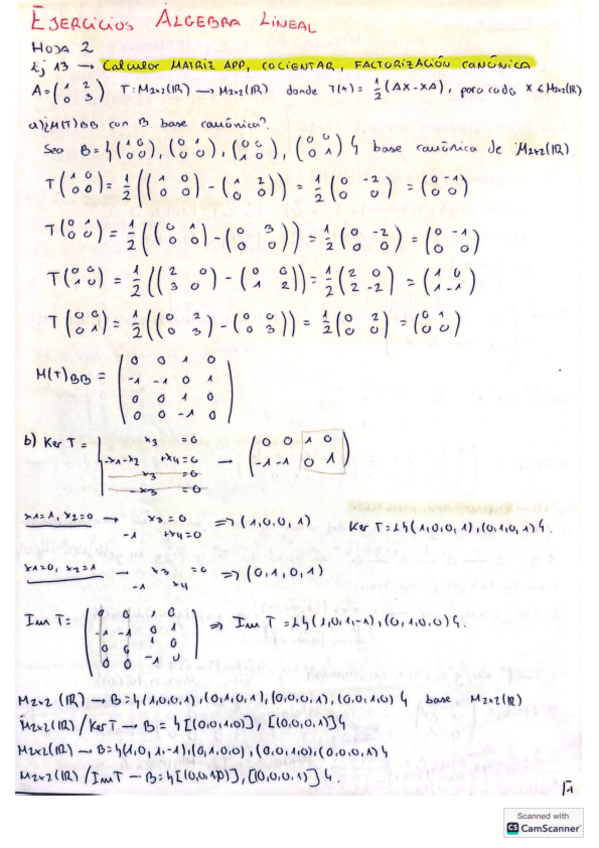 EJERCICIOS ÁLGEBRA LINEAL
HOJA 2
Ej 13 → Calcular MATRIZ APP, COCIENTAR, FACTORIZACIÓN CANÓNICA
A = (1 2 / 0 3) T: M2x2(IR) → M2x2(IR) donde T(x) = 1/2 (AX - XA), para cada X ∈ M2x2(IR)
a) ¿M(T)BB con B base canónica?
Sea B = {(1 0 / 0 0), (0 1 / 0 0), (0 0 / 1 0), (0 0 / 0 1)} base canónica de M2x2(IR)
T(1 0 / 0 0) = 1/2 ((1 0 / 0 0) - (1 2 / 0 0)) = 1/2 (0 -2 / 0 0) = (0 -1 / 0 0)
T(0 1 / 0 0) = 1/2 ((0 1 / 0 0) - (0 3 / 0 0)) = 1/2 (0 -2 / 0 0) = (0 -1 / 0 0)
T(0 0 / 1 0) = 1/2 ((2 0 / 3 0) - (0 0 / 1 2)) = 1/2 (2 0 / 2 -2) = (1 0 / 1 -1)
T(0 0 / 0 1) = 1/2 ((0 2 / 0 3) - (0 0 / 0 3)) = 1/2 (0 2 / 0 0) = (0 1 / 0 0)
M(T)BB = (0 0 1 0 / -1 -1 0 1 / 0 0 1 0 / 0 0 -1 0)
b) Ker T = | x3 = 0 / -x1 - x2 + x4 = 0 / x3 = 0 / -x3 = 0 → (0 0 1 0 / -1 -1 0 1)
x1=1, x2=0 → x3 = 0 / -1 + x4 = 0 => (1,0,0,1) Ker T = L{(1,0,0,1),(0,1,0,1)}.
x1=0, x2=1 → x3 = 0 / -1 x4 => (0,1,0,1)
Im T = (0 0 1 0 / -1 -1 0 1 / 0 0 1 0 / 0 0 -1 0) => Im T = L{(1,0,1,-1),(0,1,0,0)}.
M2x2 (IR) → B = {(1,0,0,1),(0,1,0,1),(0,0,0,1),(0,0,1,0)} base M2x2(IR)
M2x2(IR)/Ker T → B = {[(0,0,1,0)], [(0,0,0,1)]}
M2x2(IR) → B = {(1,0,1,-1),(0,1,0,0),(0,0,1,0),(0,0,0,1)}
M2x2(IR)/Im T → B = {[(0,0,1,0)], [(0,0,0,1)]}.
Scanned with
CS CamScanner